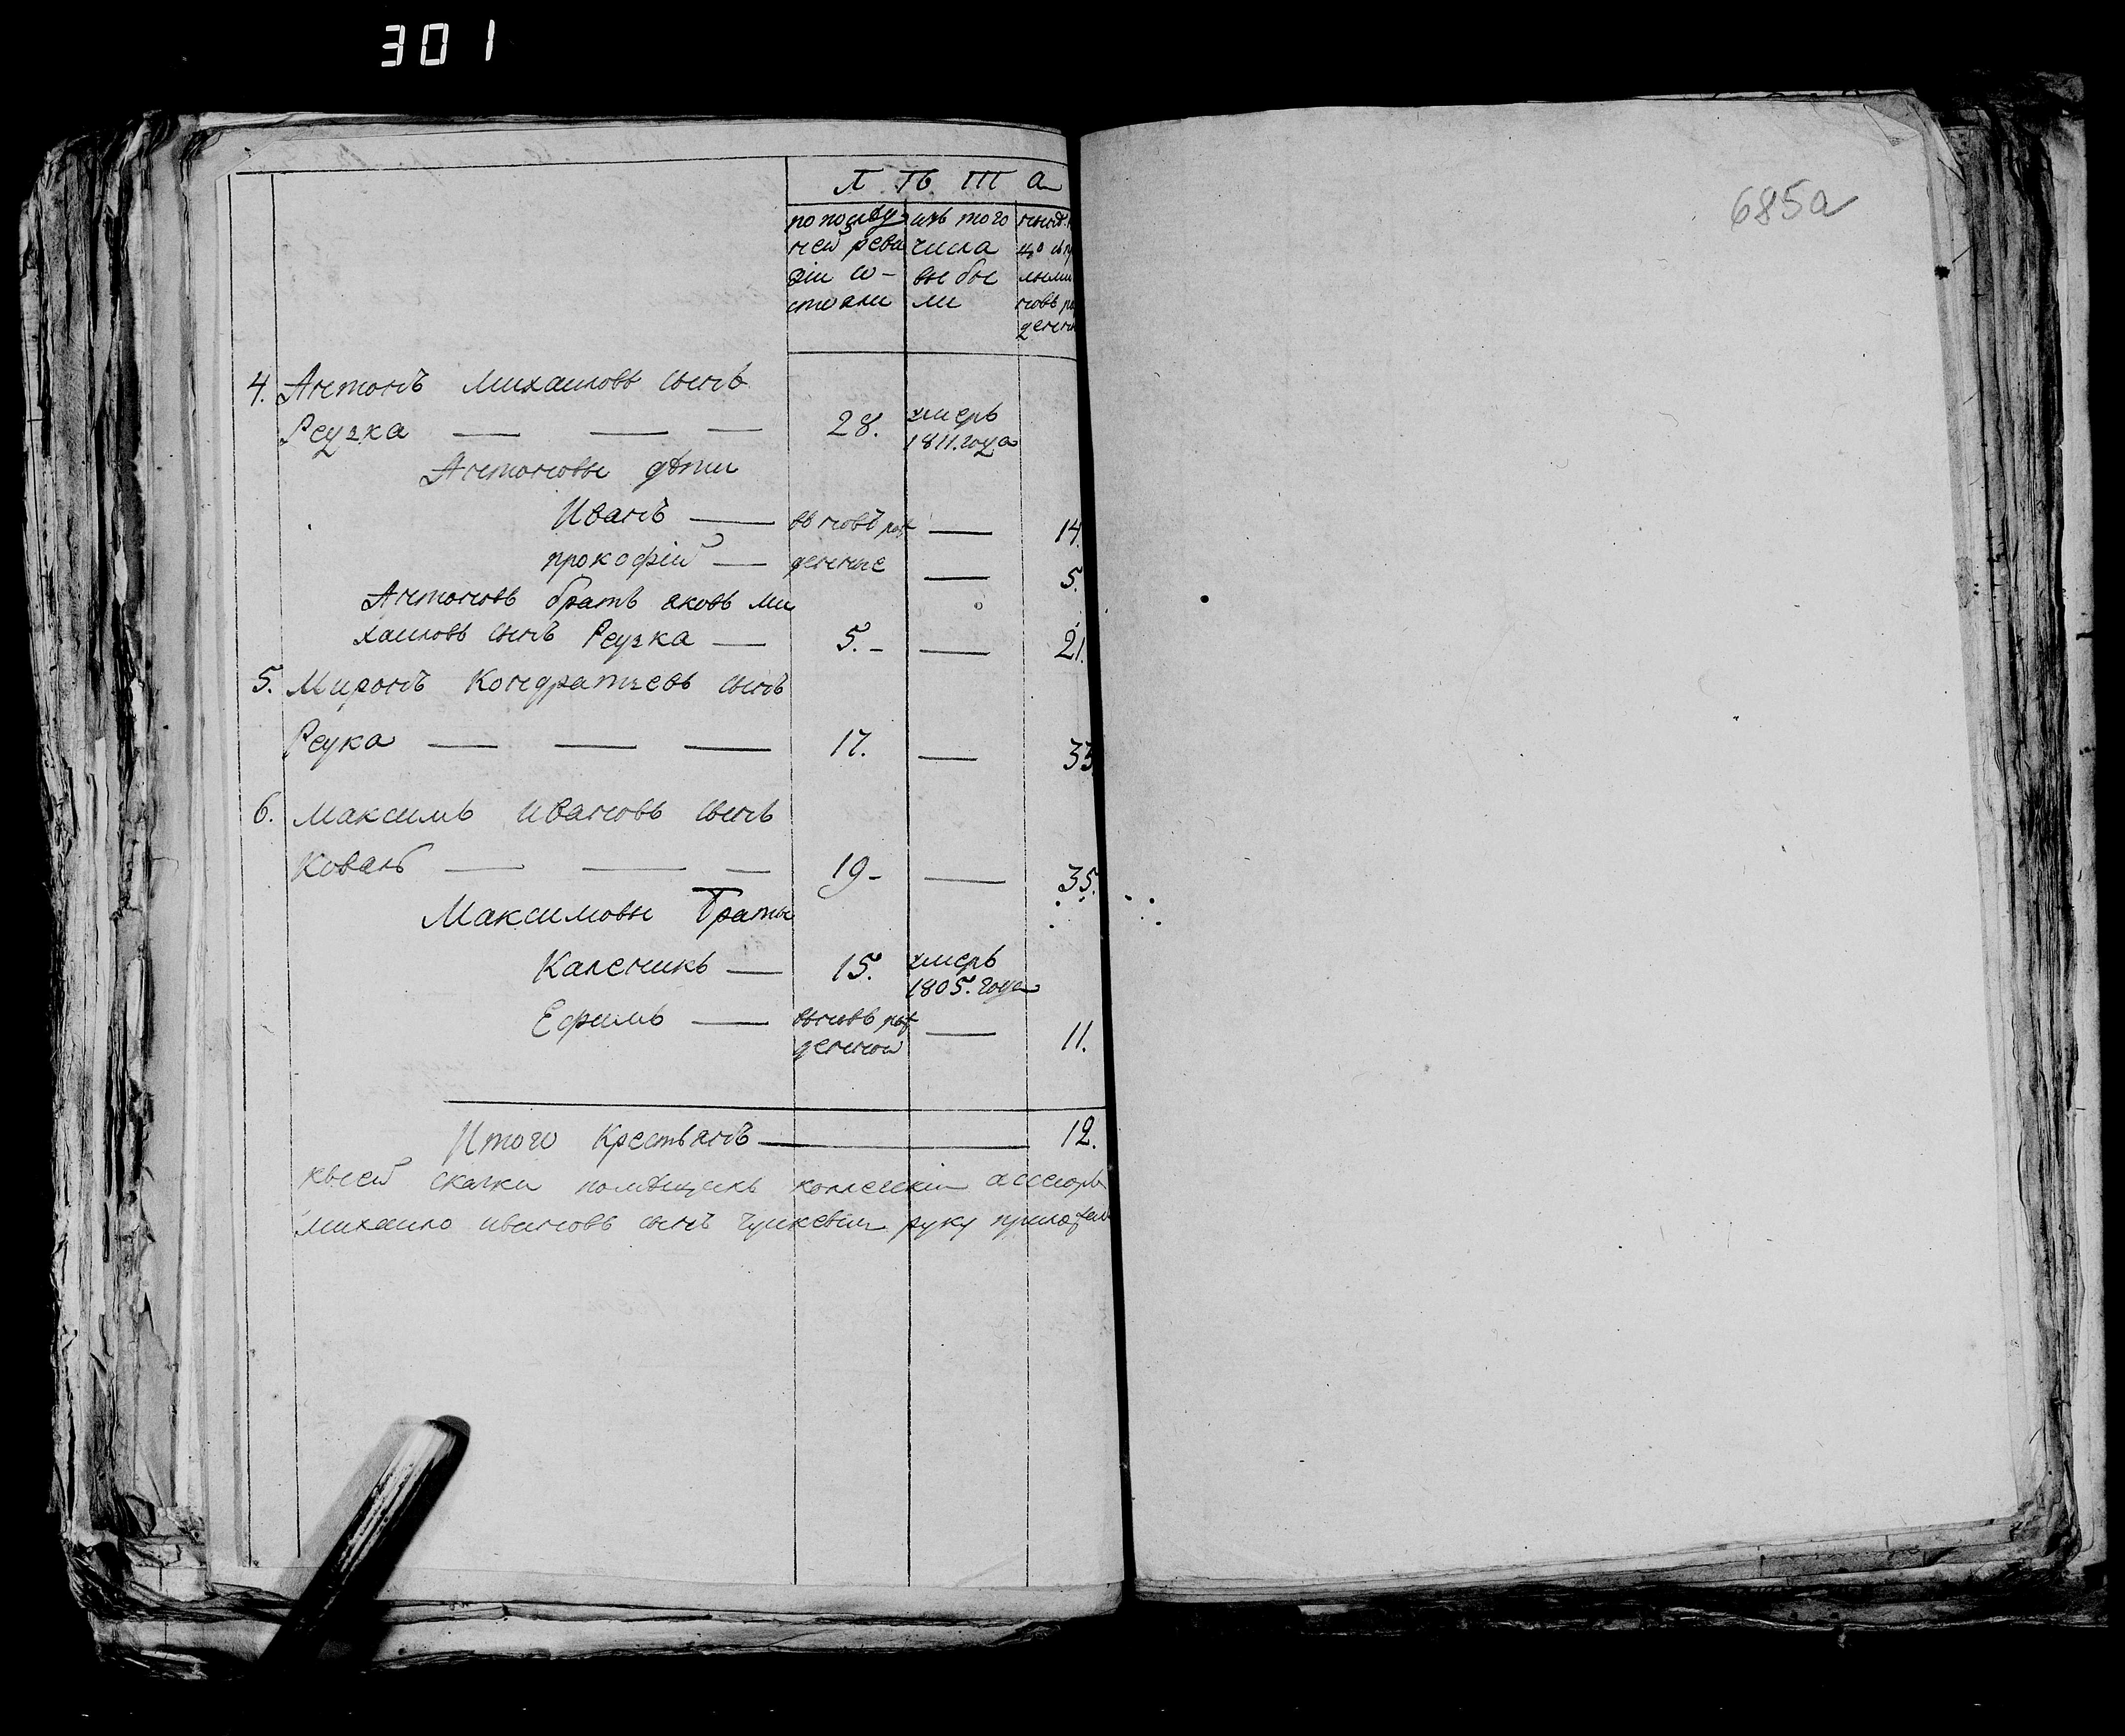 301
685а
Л Ѣ Т А
по послѣду
ней реви
зіи со-
стояли
изъ того
числа
выбы
ли
4. Антонъ Михаиловъ сынъ
Реузка — — — 28. умеръ
1811. года
Антоновы дѣти
Иванъ — вновь рож — 14.
прокофій — денные — 5.
Антоновъ братъ яковъ ми
хаиловъ сынъ Реузка — 5.- — 21.
5. Миронъ Кондратьевъ сынъ
Реука — — — 17. — 33
6. Максимъ ивановъ сынъ
Коваль — — — 19- — 35.
Максимовы братья
Каленикъ — 15. умеръ
1805. года
Ефимъ — вновь рож — 11.
денной
Итого Крестьянъ — 12.
к сей скаски помѣщикъ колежскій ассесоръ
михаило ивановъ сынъ руку приложилъ